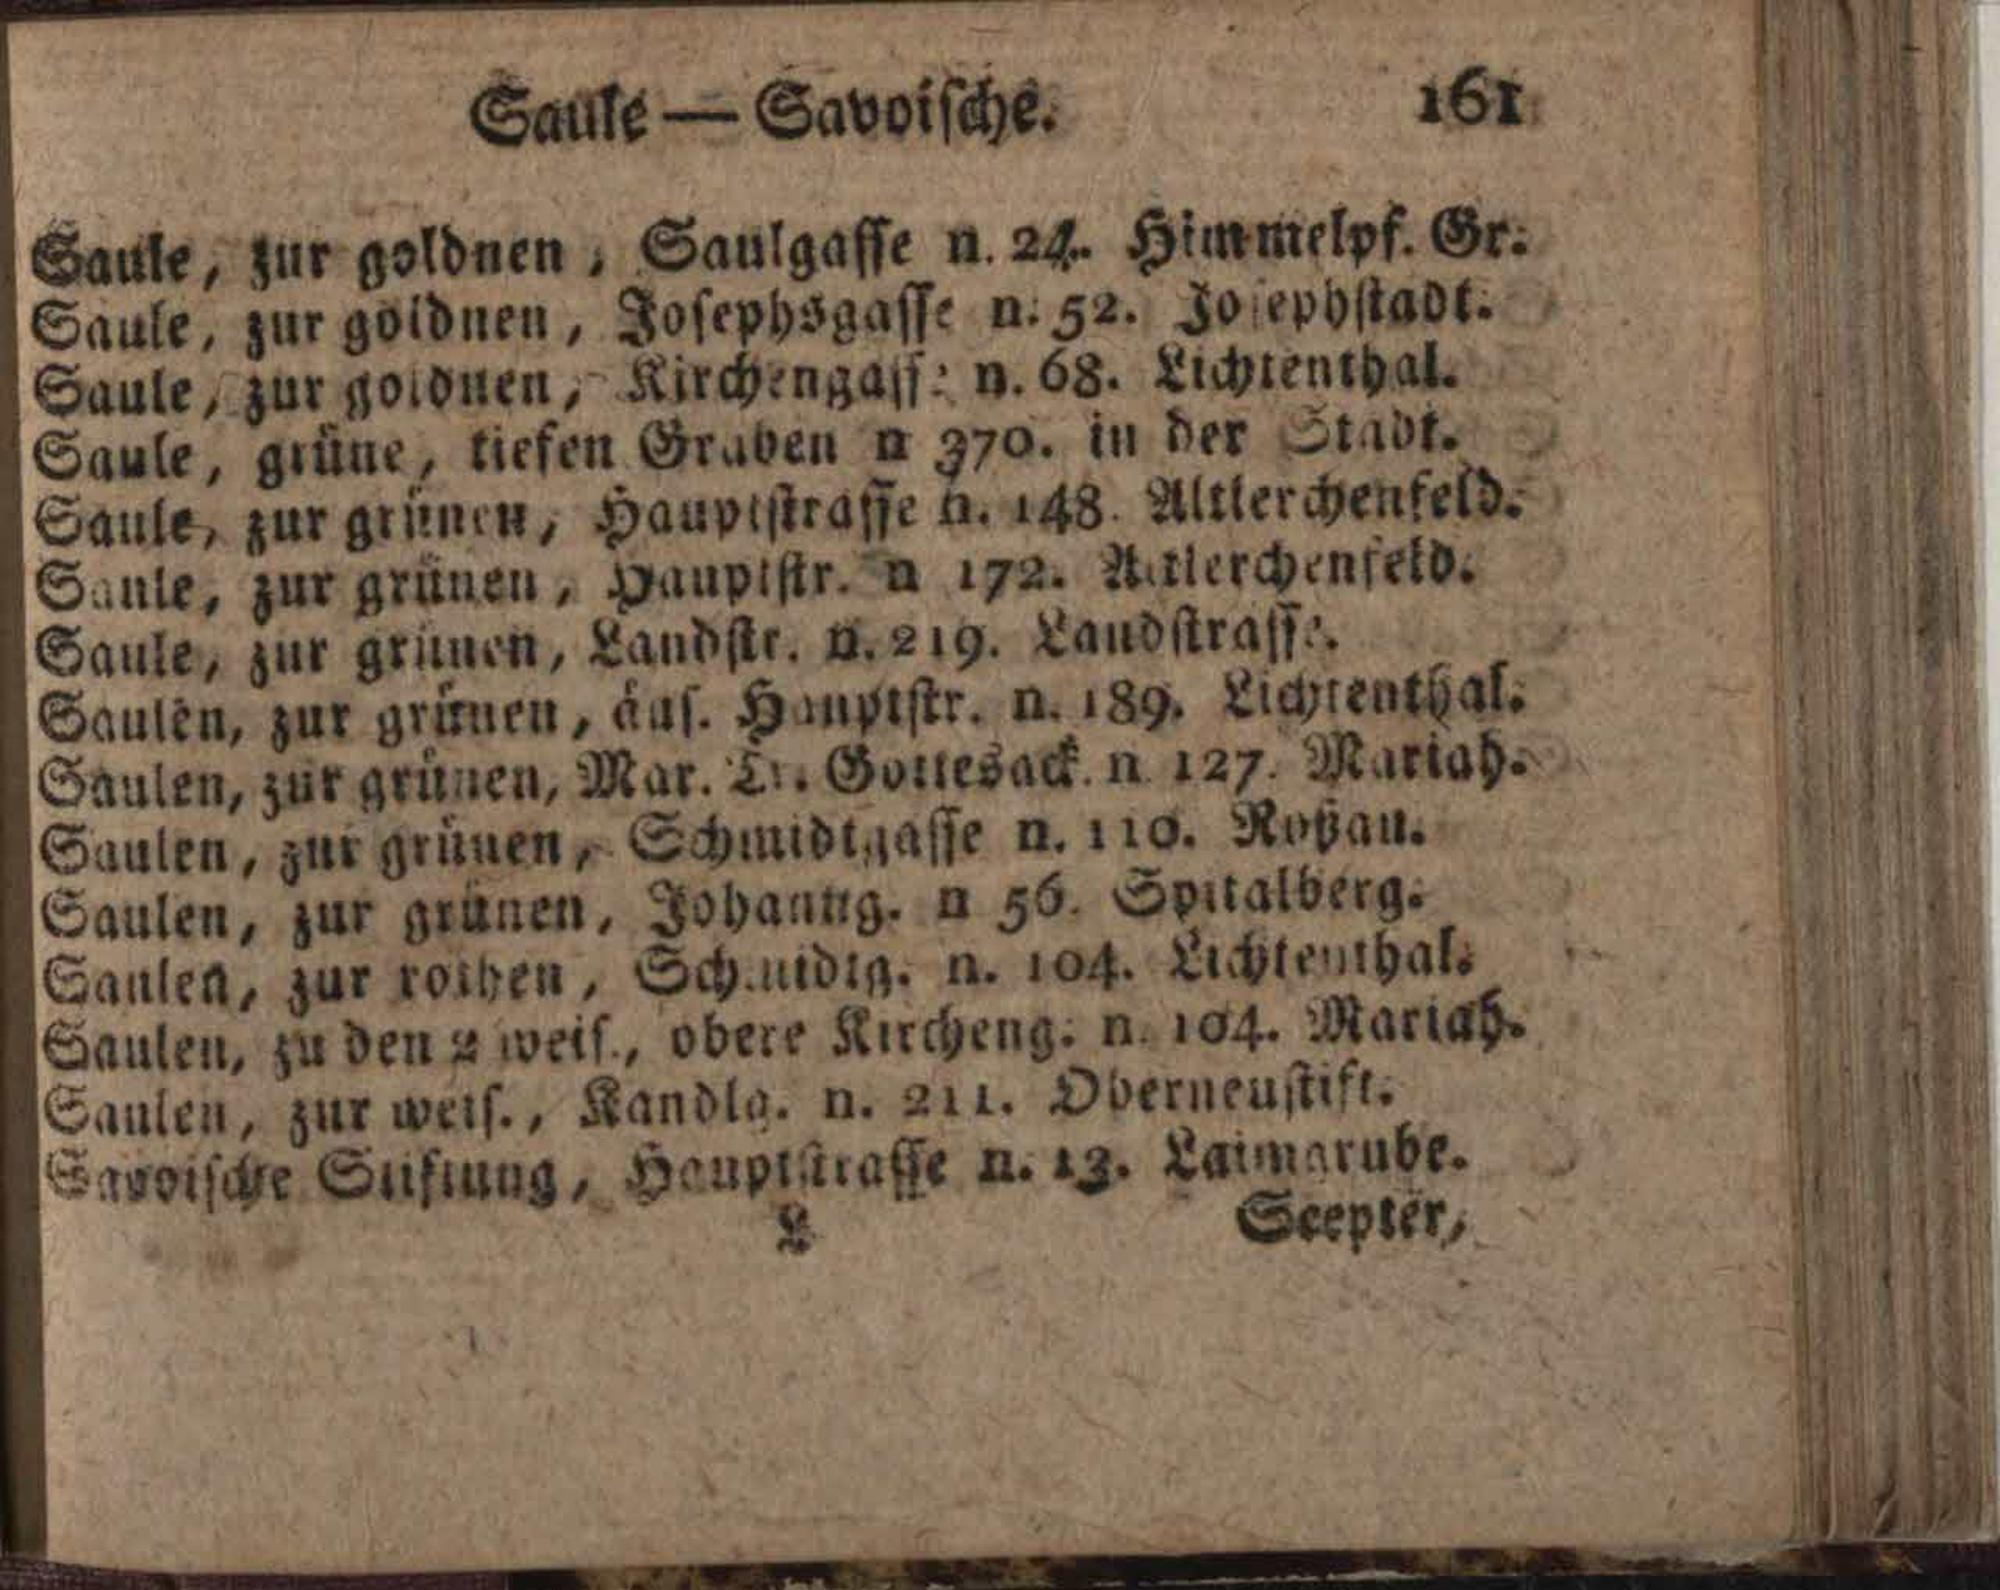 Saule — Savoische. 161
Saule, zur goldnen, Saulgasse n. 24. Himmelpf. Gr.
Saule, zur goldnen, Josephsgasse n. 52. Josephstadt.
Saule, zur goldnen, Kirchengasse n. 68. Lichtenthal.
Saule, grüne, tiefen Graben n 370. in der Stadt.
Saule, zur grünen, Hauptstrasse n. 148. Altlerchenfeld.
Saule, zur grünen, Hauptstr. n 172. Altlerchenfeld.
Saule, zur grünen, Landstr. n. 219. Landstrasse.
Saulen, zur grünen, äus. Hauptstr. n. 189. Lichtenthal.
Saulen, zur grünen, Mar. Tr. Gottesack. n. 127. Mariah.
Saulen, zur grünen, Schmidtgasse n. 110. Roßau.
Saulen, zur grünen, Johanng. n 56. Spitalberg.
Saulen, zur rothen, Schmidtg. n. 104. Lichtenthal.
Saulen, zu den 2 weis., obere Kircheng. n. 104. Mariah.
Saulen, zur weis., Kandlg. n. 211. Oberneustift.
Savoische Stiftung, Hauptstrasse n. 13. Laimgrube.
L Scepter,